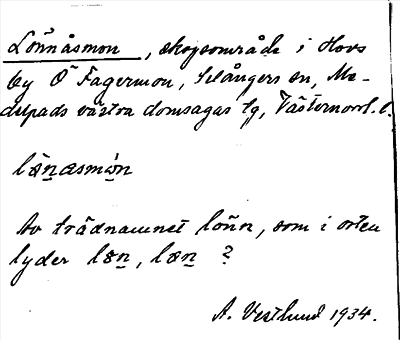 Lönnåsmon, skogsområde i Hovs
by Ö Fagermon, Selångers sn, Me-
delpads västra domsagas tg, Västernorrl. l.
læn̲æsmón
Av trädnamnet lönn, som i orten
lyder læn̲, læn̲ ?
A. Vestlund 1934.